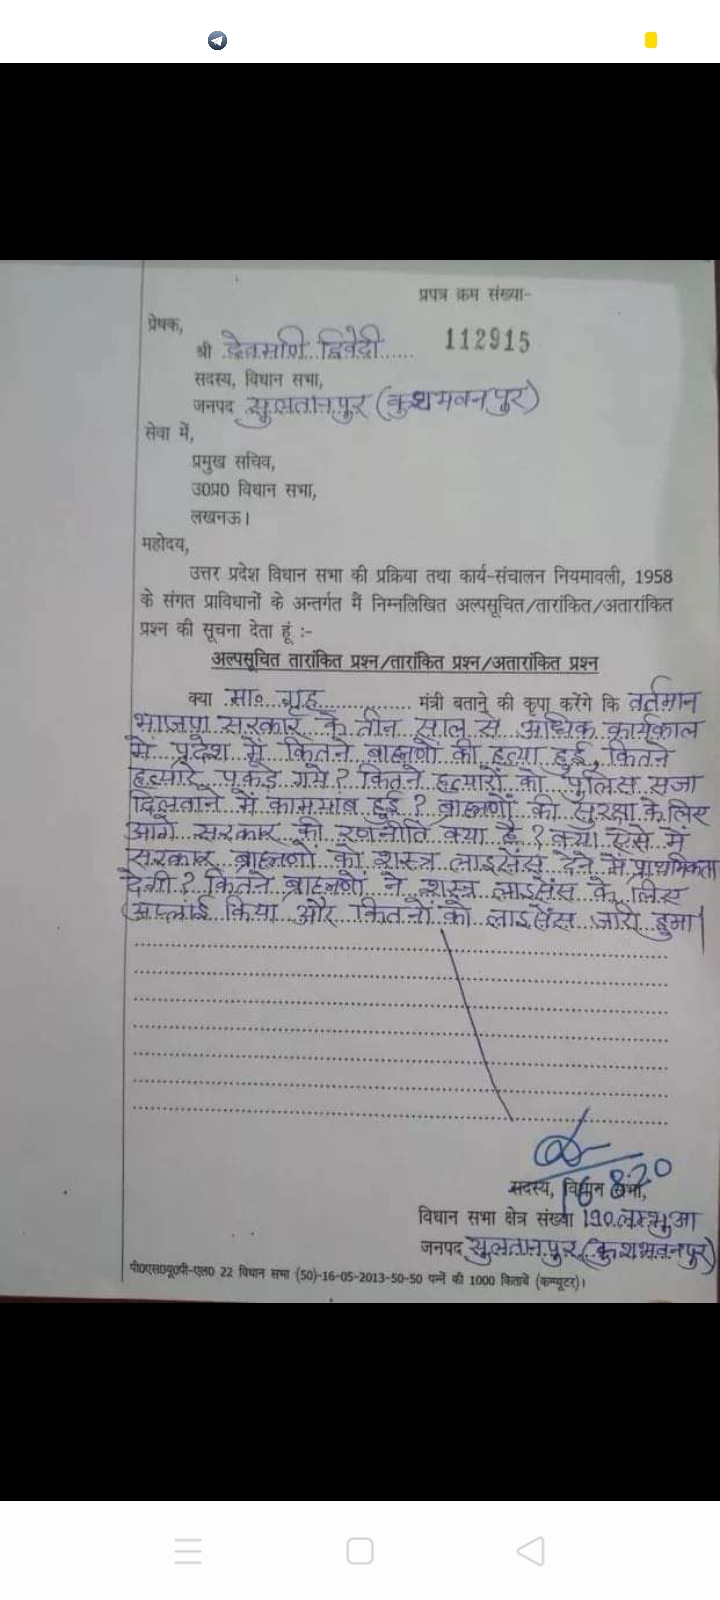 प्रपत्र क्रम संख्या-
प्रेषक,
श्री देवमणि द्विवेदी 112915
सदस्य, विधान सभा,
जनपद सुलतानपुर (कुशभवनपुर)
सेवा में,
प्रमुख सचिव,
उ०प्र० विधान सभा,
लखनऊ।
महोदय,
उत्तर प्रदेश विधान सभा की प्रक्रिया तथा कार्य-संचालन नियमावली, 1958
के संगत प्राविधानों के अन्तर्गत मैं निम्नलिखित अल्पसूचित/तारांकित/अतारांकित
प्रश्न की सूचना देता हूं :-
अल्पसूचित तारांकित प्रश्न/तारांकित प्रश्न/अतारांकित प्रश्न
क्या मा० गृह मंत्री बताने की कृपा करेंगे कि वर्तमान
भाजपा सरकार के तीन साल से अधिक कार्यकाल
में प्रदेश में कितने ब्राह्मणों की हत्या हुई, कितने
हत्यारे पकड़े गये? कितने हत्यारों को पुलिस सजा
दिलवाने में कामयाब हुई? ब्राह्मणों की सुरक्षा के लिए
आगे सरकार की रणनीति क्या है? क्या ऐसे में
सरकार ब्राह्मणों को शस्त्र लाइसेंस देने में प्राथमिकता
देगी? कितने ब्राह्मणों ने शस्त्र लाइसेंस के लिए
अप्लाई किया और कितनों को लाइसेंस जारी हुआ।
16 8.20
सदस्य, विधान सभा,
विधान सभा क्षेत्र संख्या 190 लम्भुआ
जनपद सुलतानपुर (कुशभवनपुर)
पी०एस०यू०पी-एल० 22 विधान सभा (50)-16-05-2013-50-50 पन्नें की 1000 किताबें (कम्प्यूटर)।